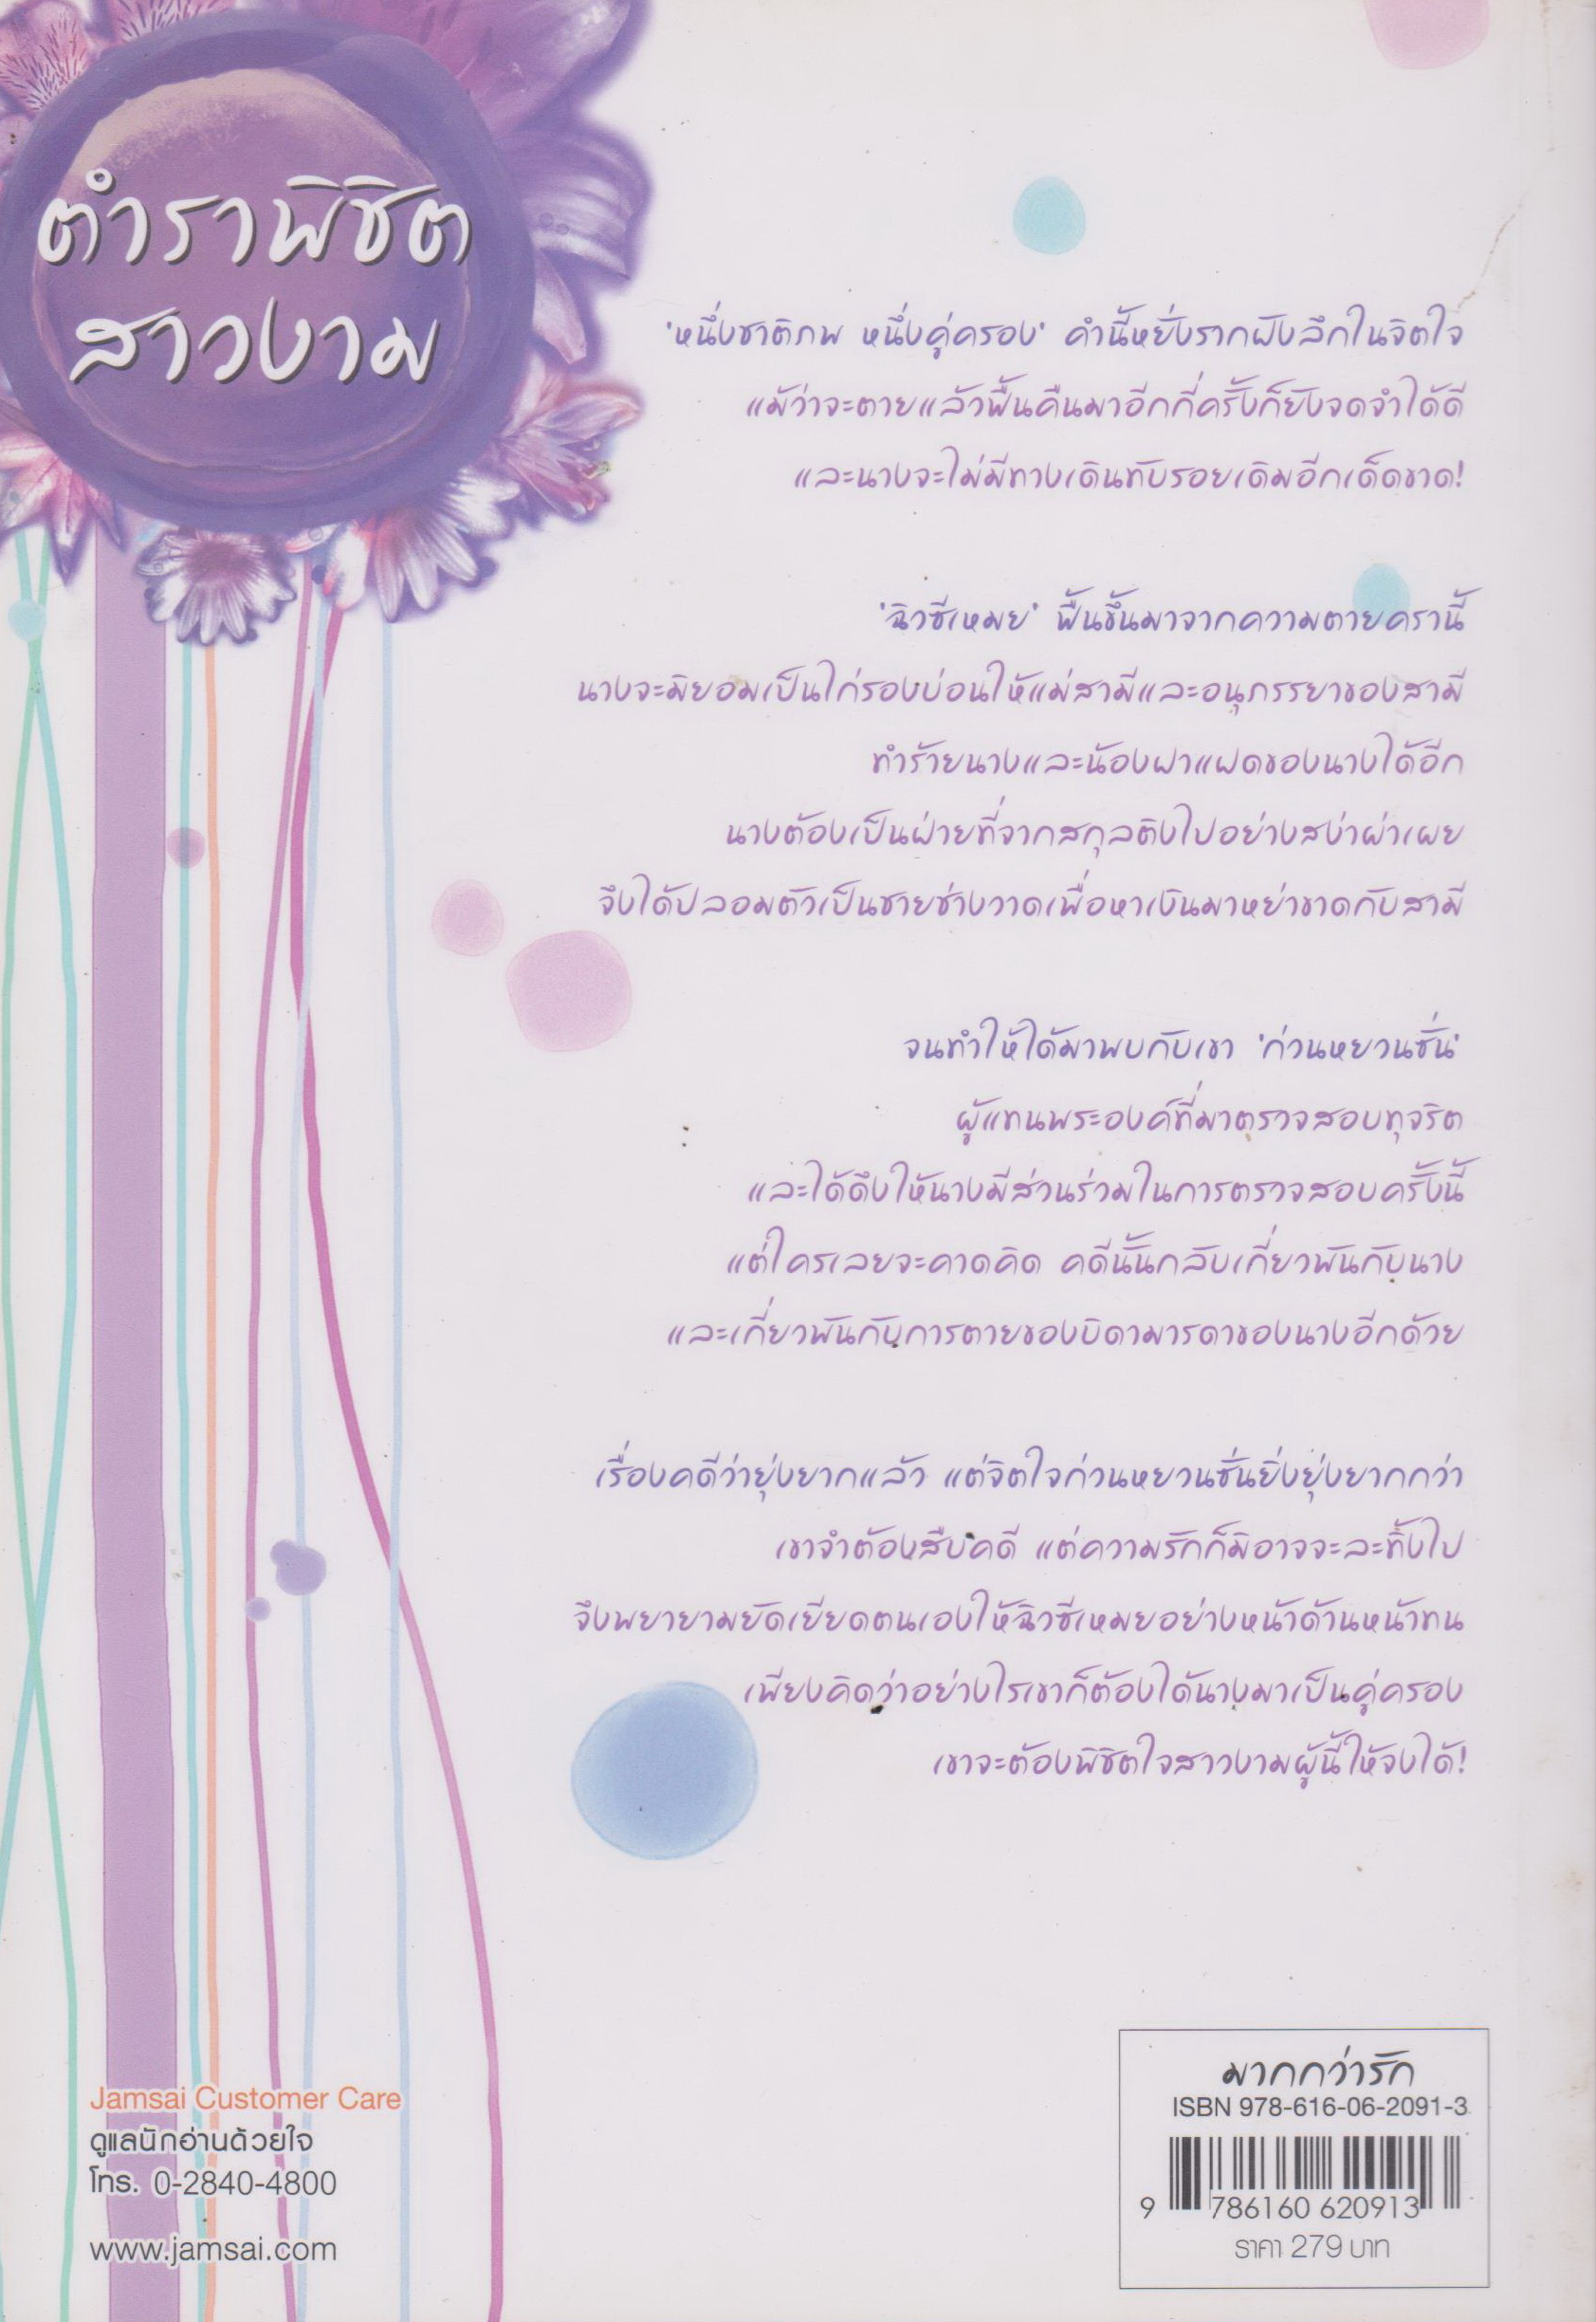 ตำราพิชิต
สาวงาม
'หนึ่งชาติภพ หนึ่งคู่ครอง' คำนี้หยั่งรากฝังลึกในจิตใจ
แม้ว่าจะตายแล้วฟื้นคืนมาอีกกี่ครั้งก็ยังจดจำได้ดี
และนางจะไม่มีทางเดินทับรอยเดิมอีกเด็ดขาด!
'ฉิวซีเหมย' ฟื้นขึ้นมาจากความตายครานี้
นางจะมิยอมเป็นไก่รองบ่อนให้แม่สามีและอนุภรรยาของสามี
ทำร้ายนางและน้องฝาแฝดของนางได้อีก
นางต้องเป็นฝ่ายที่จากสกุลติงไปอย่างสง่าผ่าเผย
จึงได้ปลอมตัวเป็นชายช่างวาดเพื่อหาเงินมาหย่าขาดกับสามี
จนทำให้ได้มาพบกับเขา 'ก่วนหยวนซั่น'
ผู้แทนพระองค์ที่มาตรวจสอบทุจริต
และได้ดึงให้นางมีส่วนร่วมในการตรวจสอบครั้งนี้
แต่ใครเลยจะคาดคิด คดีนั้นกลับเกี่ยวพันกับนาง
และเกี่ยวพันกับการตายของบิดามารดาของนางอีกด้วย
เรื่องคดีว่ายุ่งยากแล้ว แต่จิตใจก่วนหยวนซั่นยิ่งยุ่งยากกว่า
เขาจำต้องสืบคดี แต่ความรักก็มิอาจจะละทิ้งไป
จึงพยายามยัดเยียดตนเองให้ฉิวซีเหมยอย่างหน้าด้านหน้าทน
เพียงคิดว่าอย่างไรเขาก็ต้องได้นางมาเป็นคู่ครอง
เขาจะต้องพิชิตใจสาวงามผู้นี้ให้จงได้!
Jamsai Customer Care
ดูแลนักอ่านด้วยใจ
โทร. 0-2840-4800
www.jamsai.com
มากกว่ารัก
ISBN 978-616-06-2091-3
9 786160 620913
ราคา 279 บาท